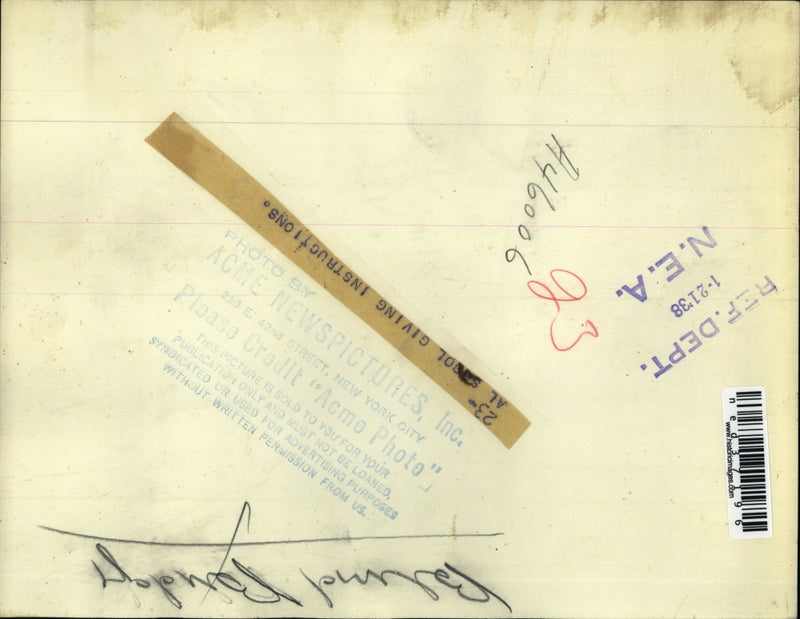 H46006
23
REF. DEPT.
1-21'38
N.E.A.
23"
AL
GIVING INSTRUCTIONS.
PHOTO BY
ACME NEWSPICTURES, Inc.
220 E. 42nd STREET, NEW YORK CITY
Please Credit "Acme Photo"
THIS PICTURE IS SOLD TO YOU FOR YOUR
PUBLICATION ONLY AND MUST NOT BE LOANED,
SYNDICATED OR USED FOR ADVERTISING PURPOSES
WITHOUT WRITTEN PERMISSION FROM US.
www.historicimages.com
ned37196